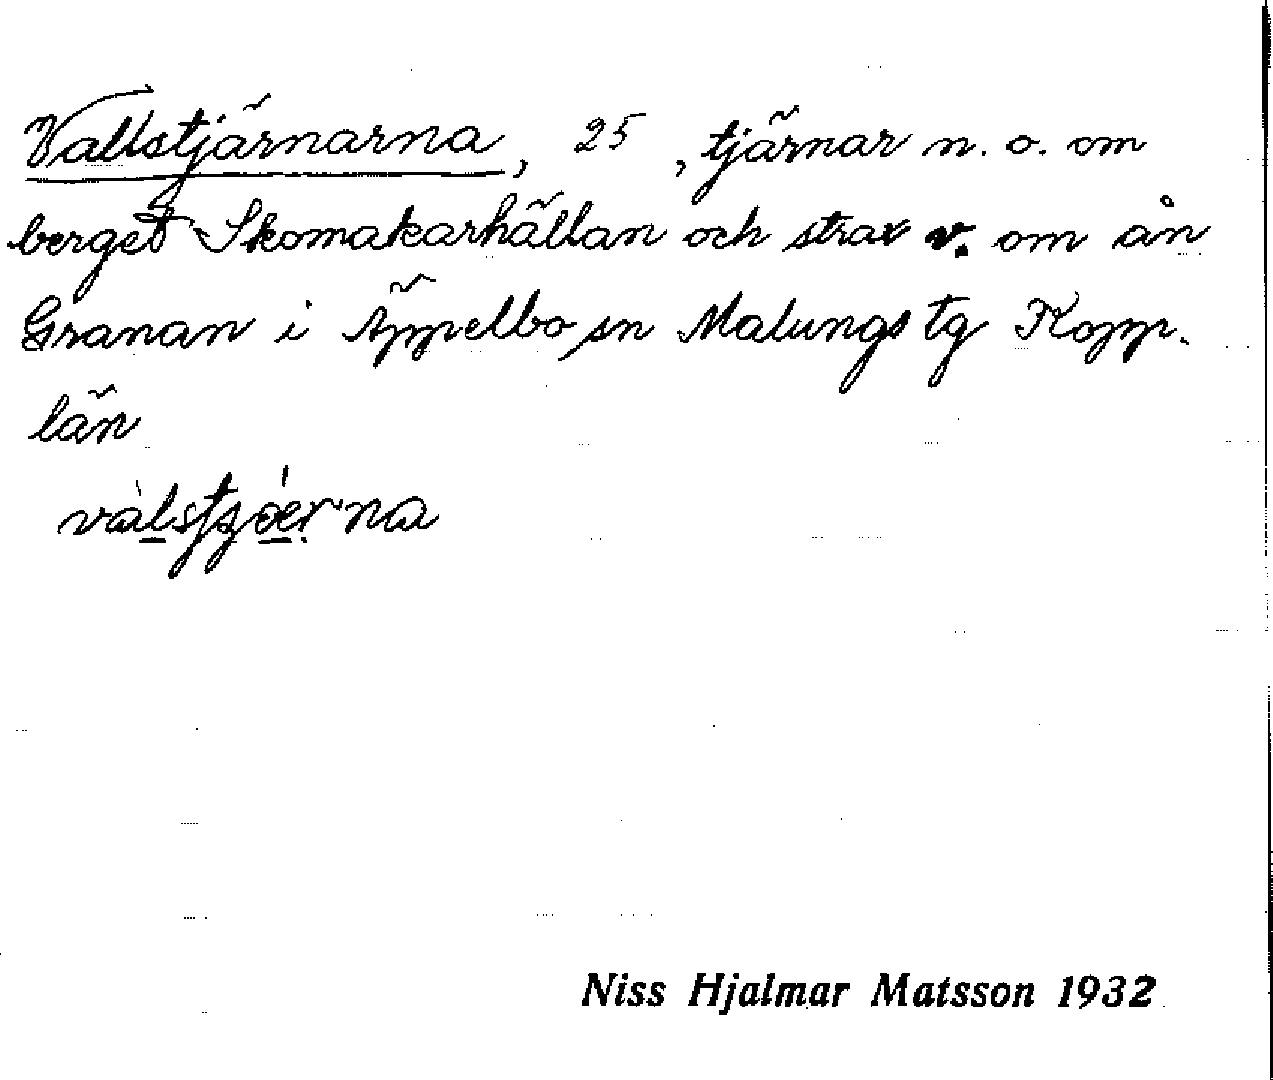 Vallstjärnarna, 25, tjärnar n. o. om
berget Skomakarhällan och strax v. om ån
Granan i Äppelbo sn Malungs tg Kopp.
län
Niss Hjalmar Matsson 1932